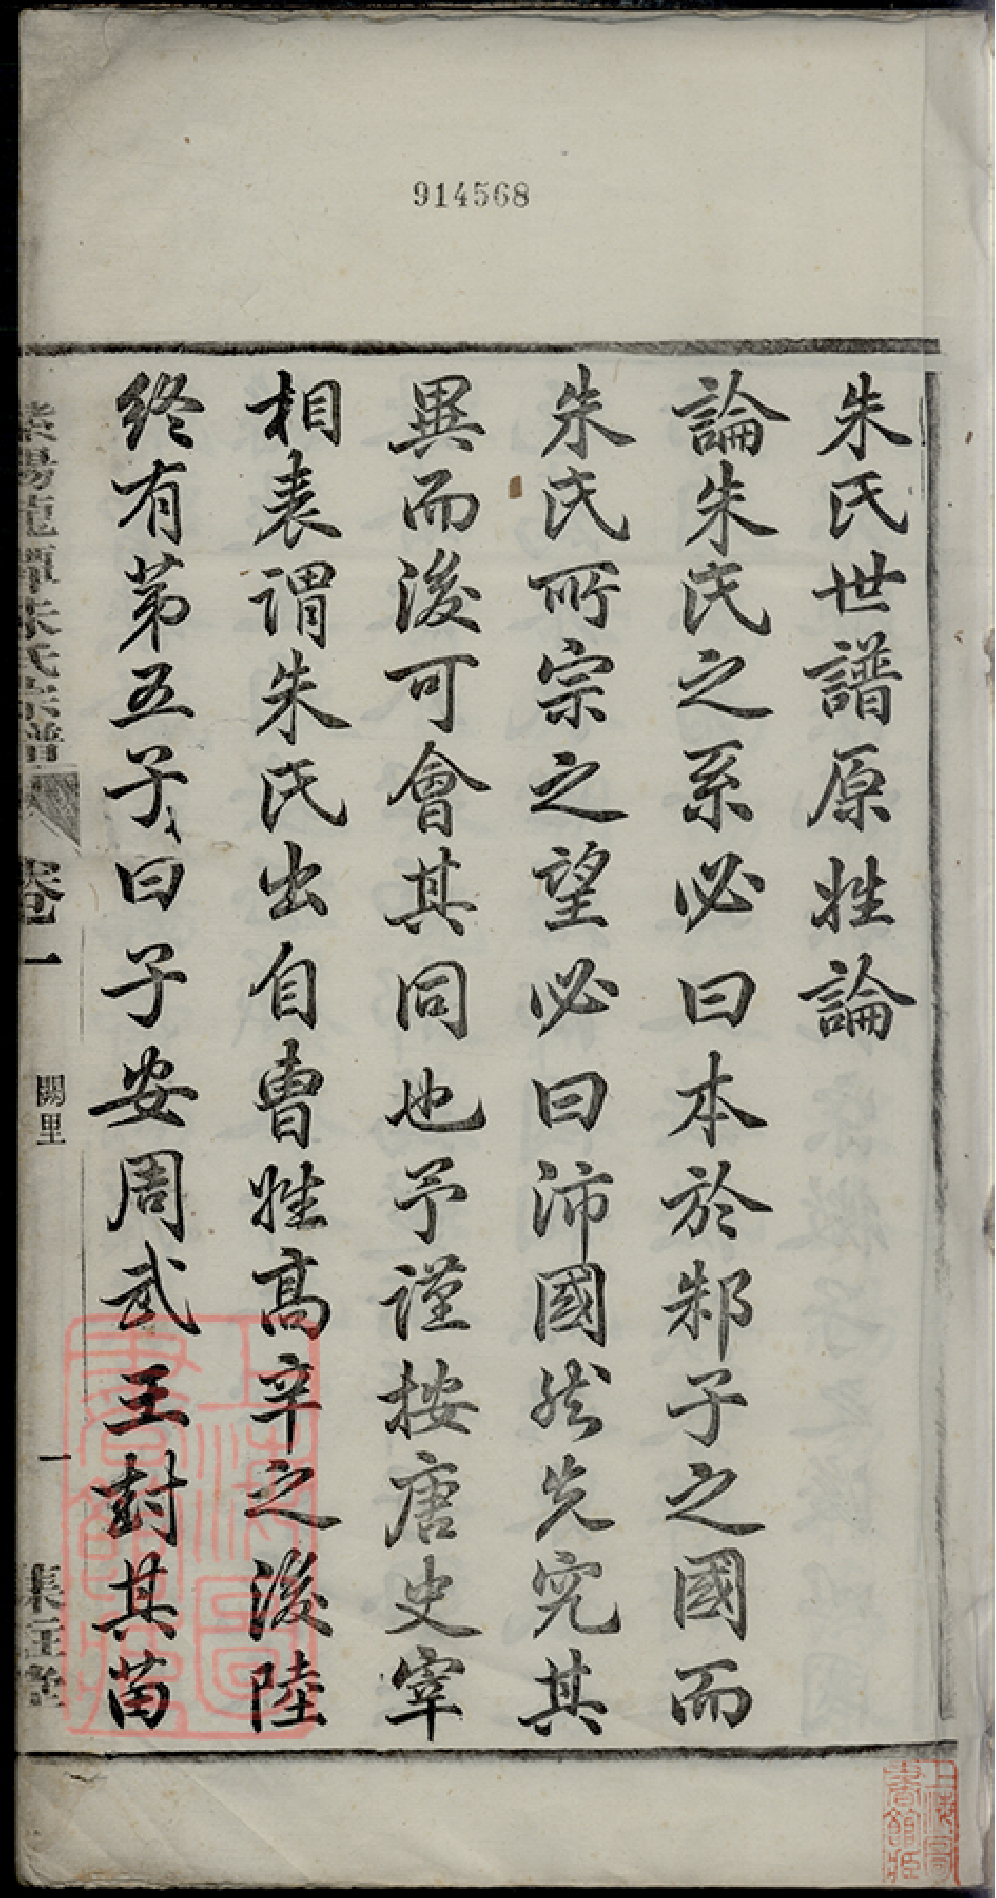 914568
朱氏世譜原姓論
論朱氏之系必曰本於邾子之國而
朱氏所宗之望必曰沛國然先究其
異而後可會其同也予謹按唐史宰
相表謂朱氏出自曹姓高辛之後陸
終有第五子曰子安周武王封其苗
卷一
闕里
一
上海圖書館藏
上海圖書館藏